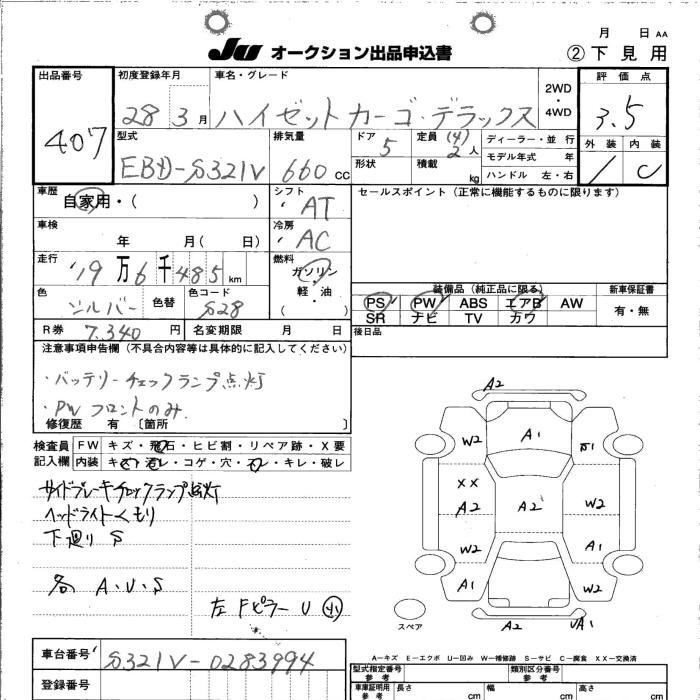 月 日 AA
JU オークション出品申込書 ②下見用
出品番号 407
初度登録年月 28年3月
車名・グレード ハイゼットカーゴ・デラックス
2WD・4WD
評価点 3.5
型式 EBD-S321V
排気量 660 cc
ドア 5
形状
定員 (4) 2人
積載 kg
ディーラー・並行
モデル年式 年
ハンドル 左・右
外装 内装 C
車歴 自家用・( )
シフト AT
セールスポイント (正常に機能するものに限ります)
車検 年 月( 日)
冷房 AC
走行 19万6千485km
燃料 ガソリン・軽・油 ( )
装備品 (純正品に限る)
新車保証書
PS PW ABS エアB AW
有・無
SR ナビ TV カワ
色 シルバー 色替
色コード S28
R券 7,340円 名変期限 月 日
後日品
注意事項申告欄 (不具合内容等は具体的に記入してください)
・バッテリーチェックランプ点灯
・PWフロントのみ
修復歴 有 〔箇所 〕
検査員記入欄
FW キズ・飛石・ヒビ割・リペア跡・X要
内装 キズ・汚レ・コゲ・穴・スレ・キレ・破レ
サイドブレーキチェックランプ点灯
ヘッドライトくもり
下廻り S
各 A.U.S
左 Fピラー U 小
A2
W2 A1
XX
A2 A2 W2
W2 A1
A1 W2
スペア
A2 UA1
A-キズ E-エクボ U-凹み W-補修跡 S-サビ C-腐食 XX-交換済
車台番号 S321V-0283994
登録番号
型式指定番号 参考
類別区分番号 参考
車庫証明用 参考
長さ cm 幅 cm 高さ cm